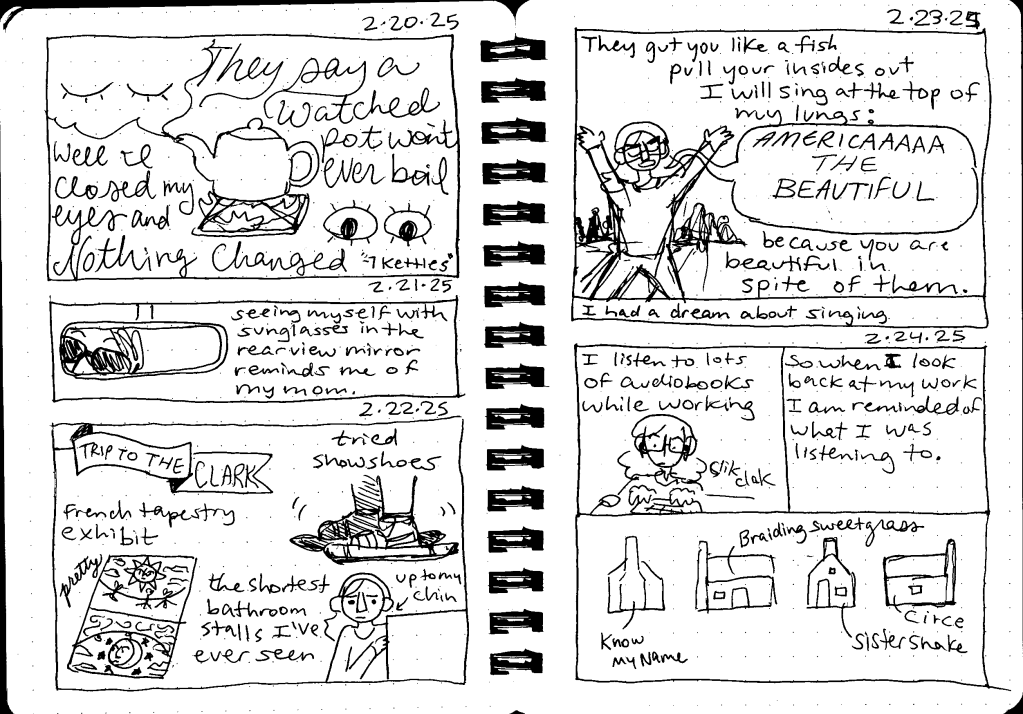 2.20.25
They say a
watched
pot won't
ever boil
Well I
closed my
eyes and
Nothing Changed
"7 Kettles"
2.21.25
seeing myself with
sunglasses in the
rearview mirror
reminds me of
my mom.
2.22.25
TRIP TO THE
CLARK
french tapestry
exhibit
pretty
tried
snowshoes
the shortest
bathroom
stalls I've
ever seen
up to my
chin
2.23.25
They gut you like a fish
pull your insides out
I will sing at the top of
my lungs:
AMERICAAAAA
THE
BEAUTIFUL
because you are
beautiful in
spite of them.
I had a dream about singing
2.24.25
I listen to lots
of audiobooks
while working
clak
So when I look
back at my work
I am reminded of
what I was
listening to.
Braiding sweetgrass
Know
my Name
Sistersnake
Circe